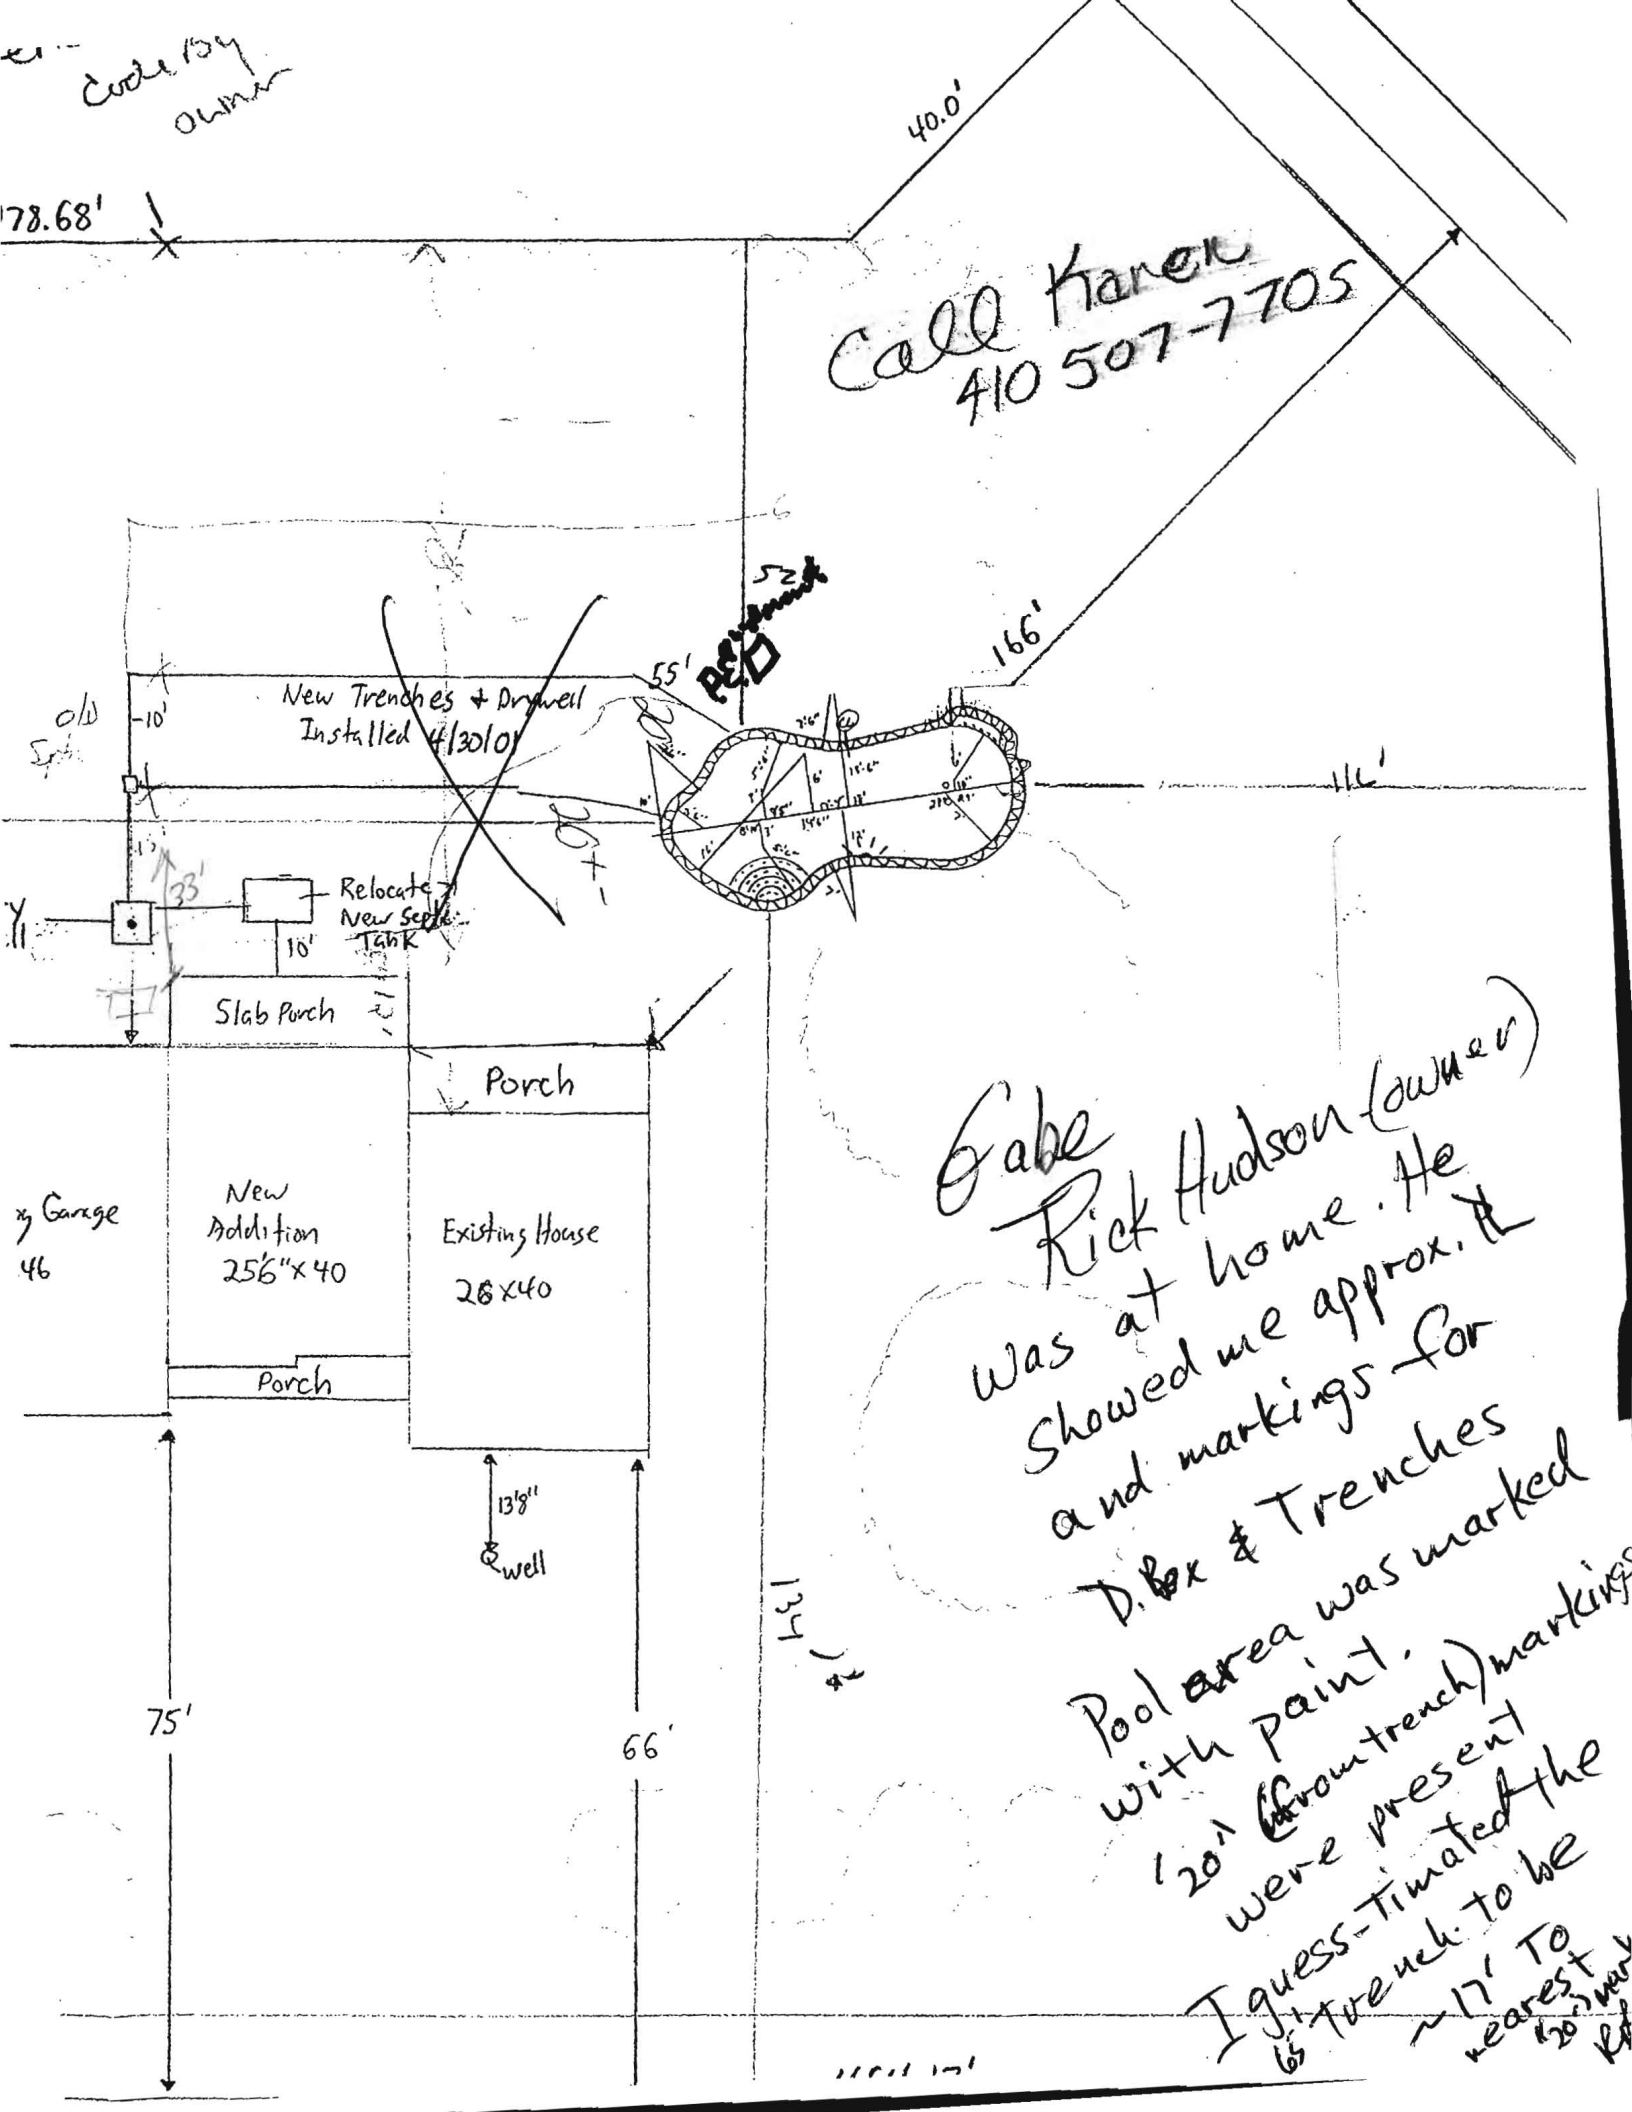 Code By
owner
40.0'
178.68'
Call Karen
410 507-7705
52'
166'
55'
New Trenches & Drywell
Installed 4/30/01
old
10'
20'
116'
33'
Relocate
New Septic
Tank
10'
Slab Porch
12'
Porch
Garage
46
New
Addition
25'6"x40
Existing House
26x40
Porch
13'8"
Well
75'
66'
134'
Gabe
Rick Hudson (owner)
was at home. He
showed me approx.
and markings for
D.Box & Trenches
Pool area was marked
with paint.
'20' (from trench) markings
were present
I guess-timated the
65' Trench to be
~17' To
nearest
'20'